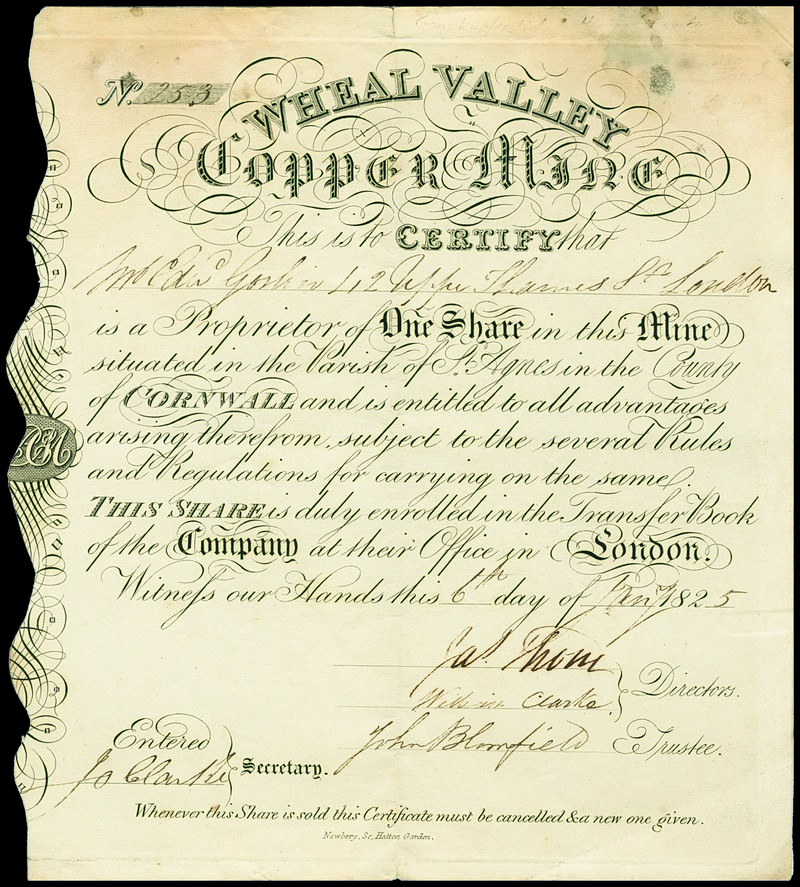 No. 253
WHEAL VALLEY
COPPER MINE
This is to CERTIFY that
Mr Edwd 112 Upper Thames St London
is a Proprietor of One Share in this Mine
situated in the Parish of St. Agnes in the County
of CORNWALL and is entitled to all advantages
arising therefrom, subject to the several Rules
and Regulations for carrying on the same.
THIS SHARE is duly enrolled in the Transfer Book
of the Company at their Office in London.
Witneſs our Hands this 6th day of 1825
Jas. Thom
William Clarke
Directors.
John Blomfield Trustee.
Entered
Jo Clarke Secretary.
Whenever this Share is sold this Certificate must be cancelled & a new one given.
Newbery, Sc, Hatton Garden.